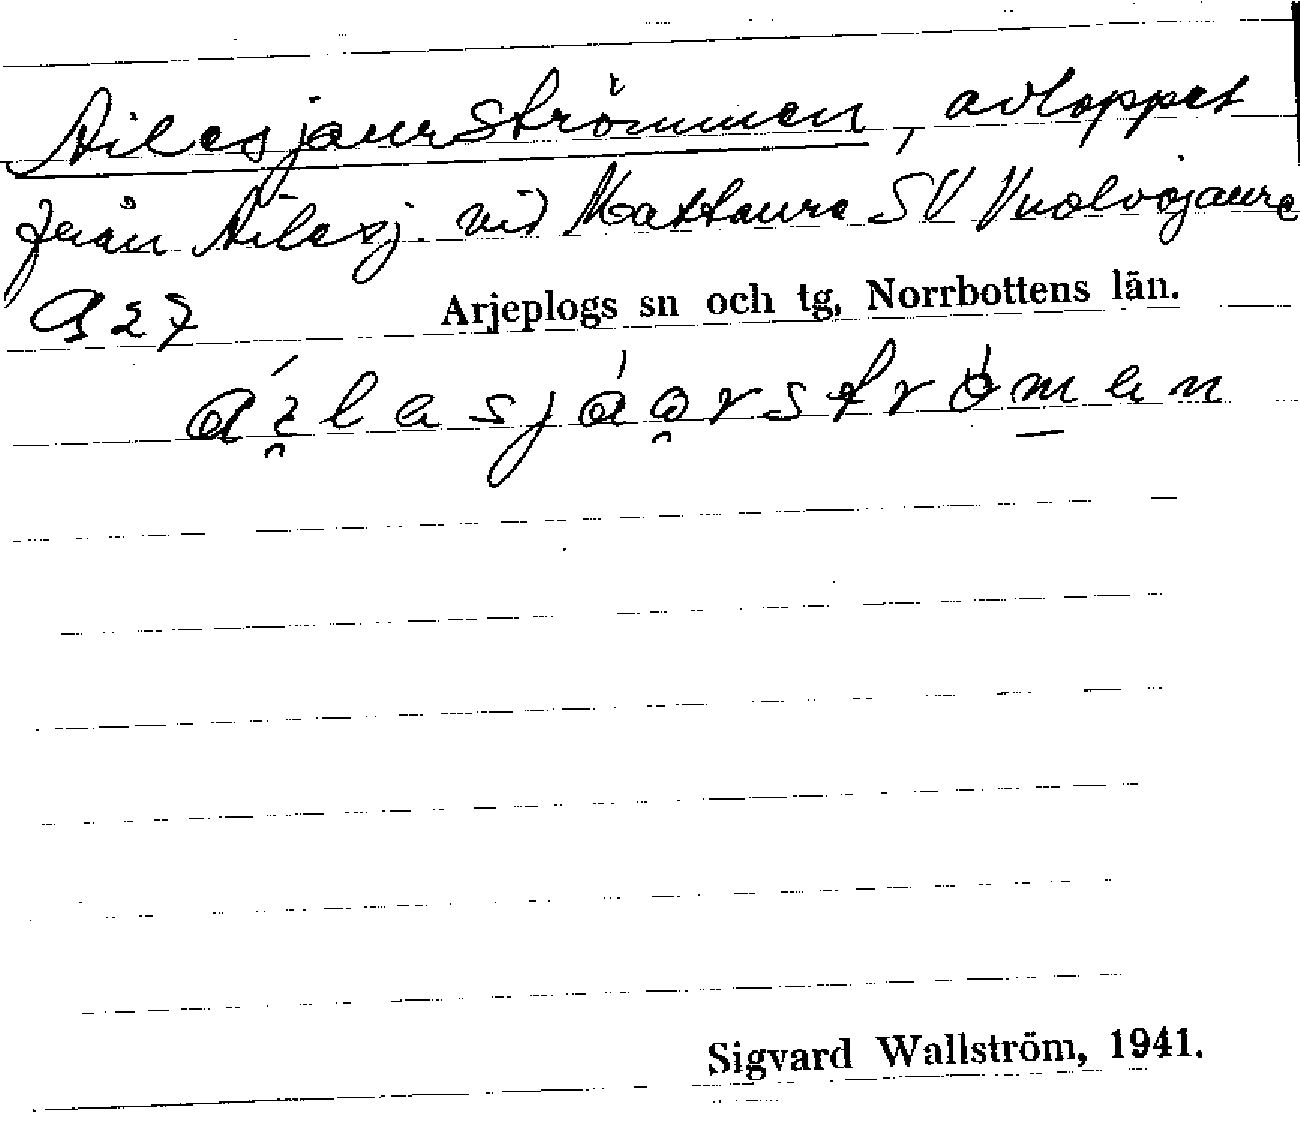 Ailesjaurströmmen, avloppet
från Ailesj. vid Mattaure SV Vuolvojaure
G27 Arjeplogs sn och tg, Norrbottens län.
Sigvard Wallström, 1941.